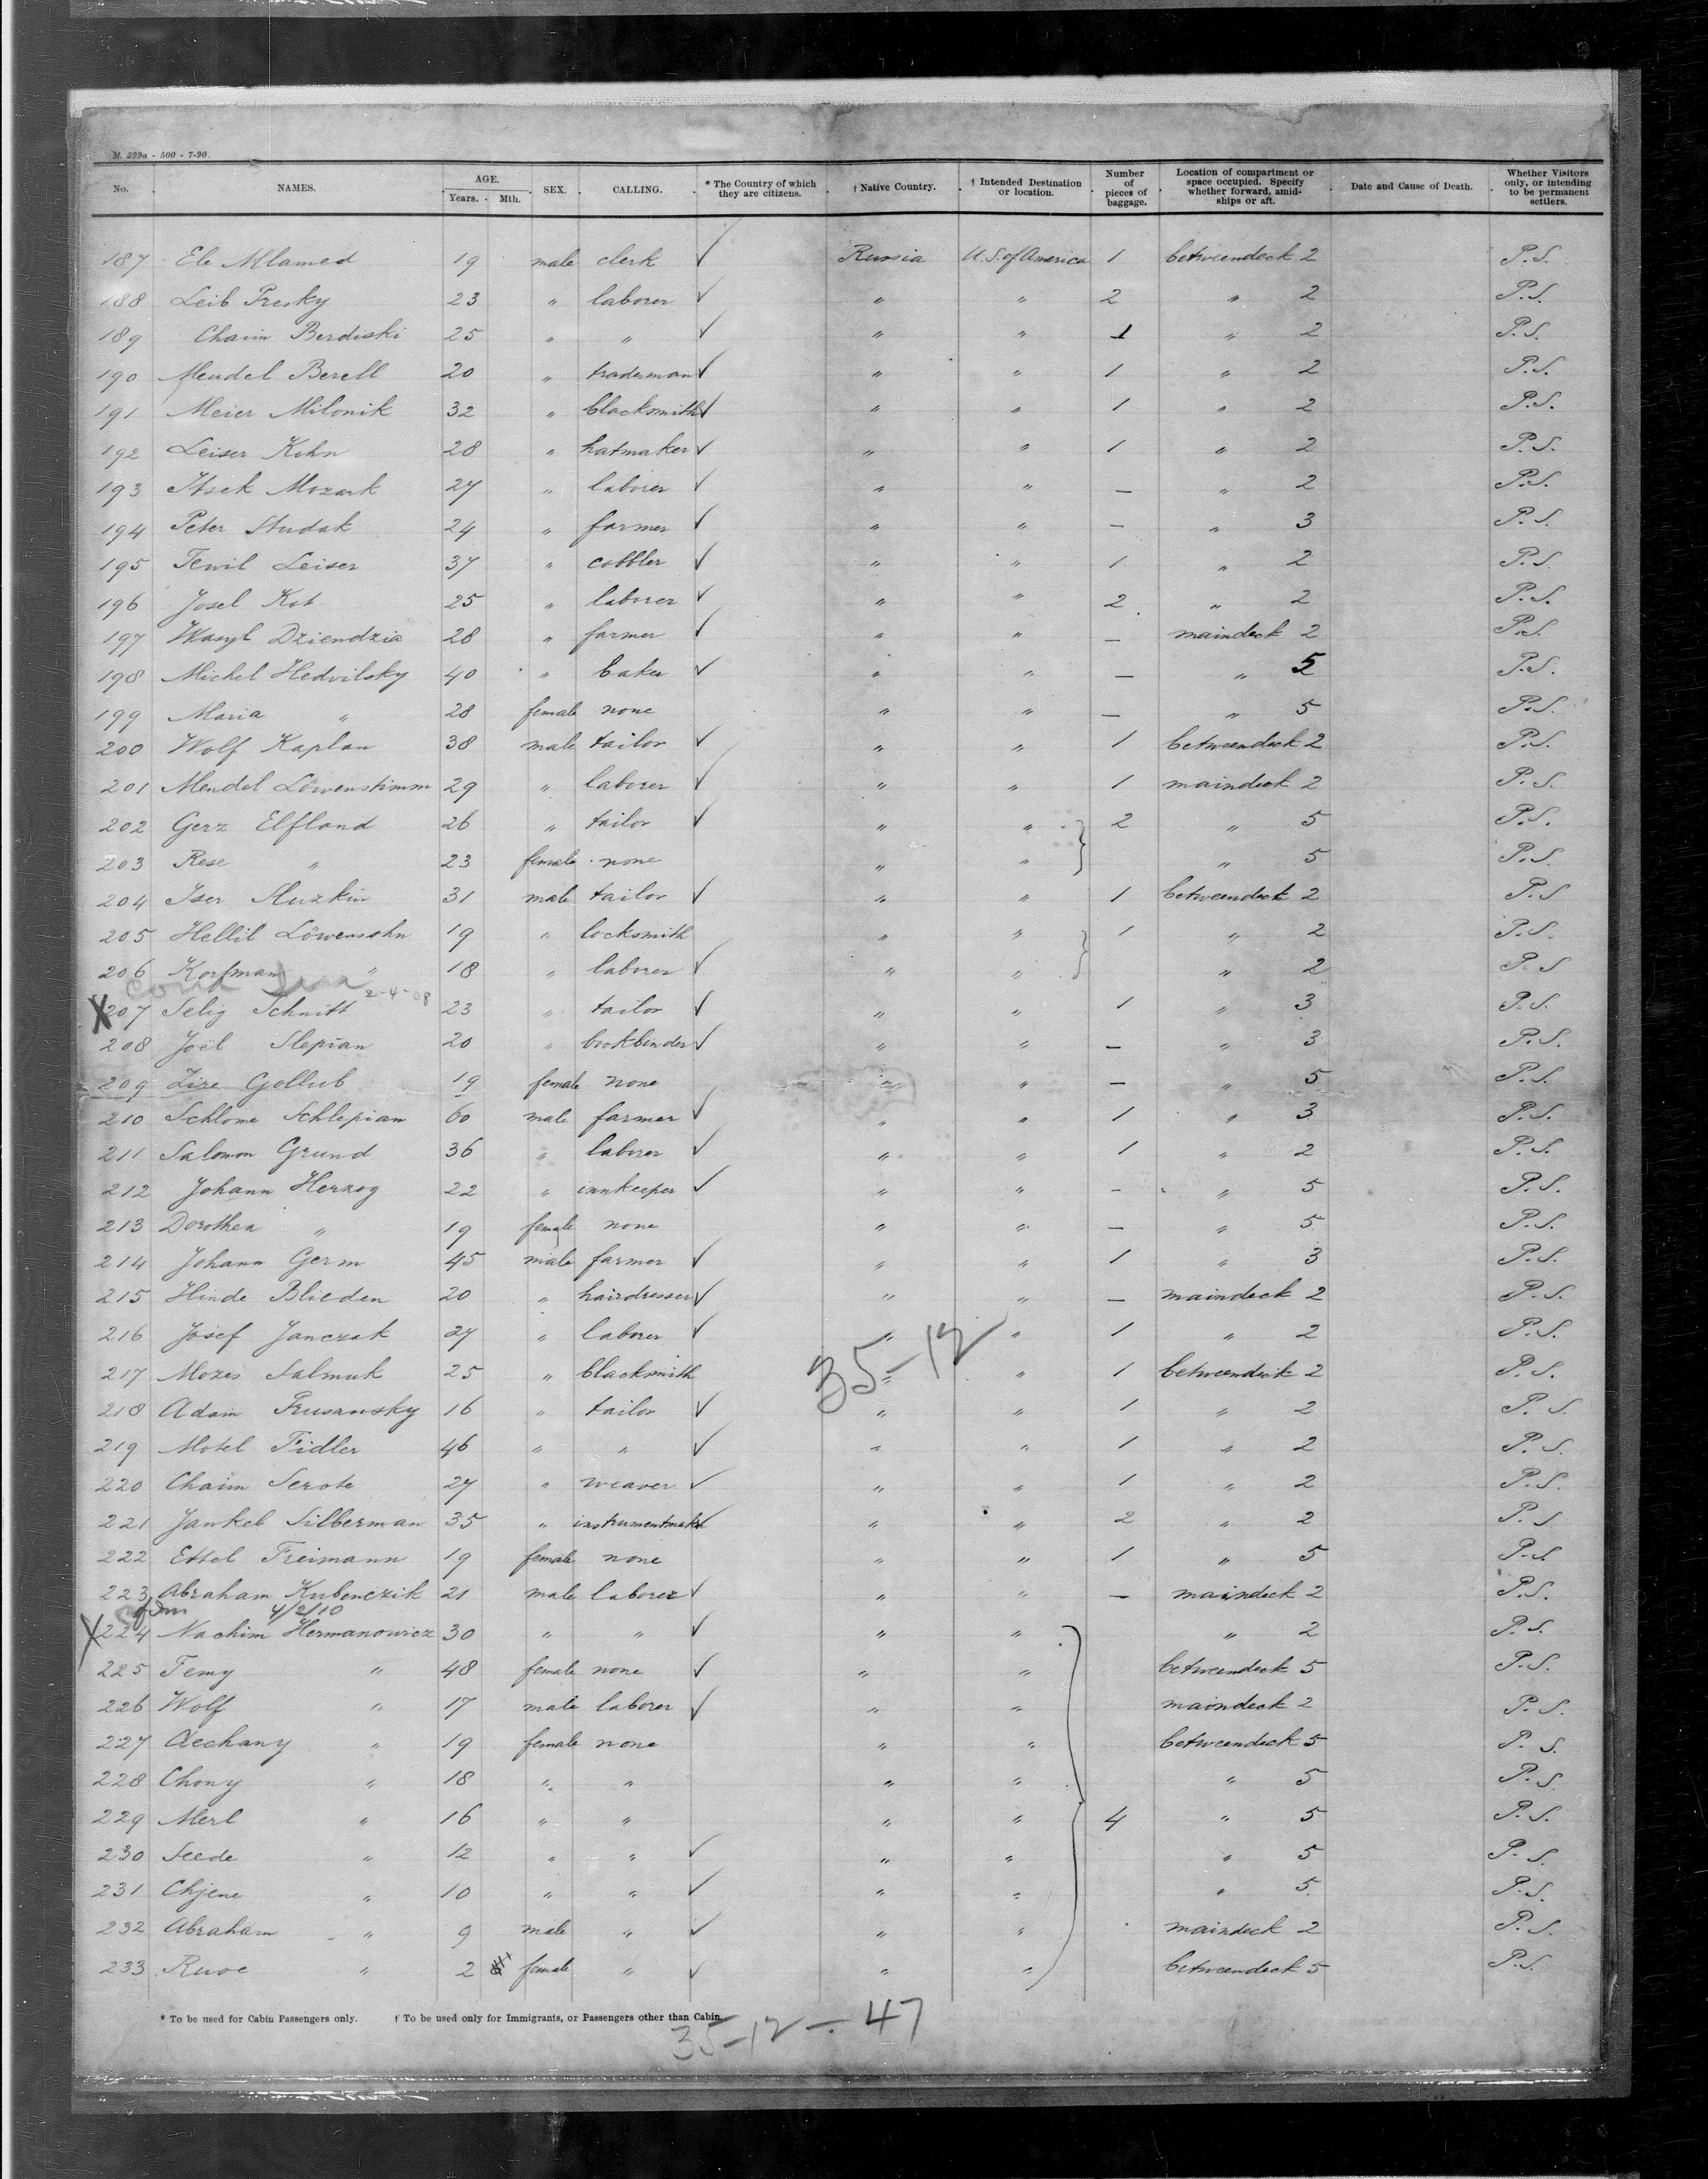 M. 299a - 500 - 7-90.
No. NAMES. AGE. Years. Mth. SEX. CALLING. * The Country of which they are citizens. † Native Country. † Intended Destination or location. Number of pieces of baggage. Location of compartment or space occupied. Specify whether forward, amidships or aft. Date and Cause of Death. Whether Visitors only, or intending to be permanent settlers.
187 Ele Mlamed 19 male clerk ✓ Russia U.S. of America 1 betweendeck 2 P.S.
188 Leib Presky 23 " laborer ✓ " " 2 " 2 P.S.
189 Chaim Berdiski 25 " " ✓ " " 1 " 2 P.S.
190 Mendel Berell 20 " tradesman ✓ " " 1 " 2 P.S.
191 Meier Milonik 32 " blacksmith ✓ " " 1 " 2 P.S.
192 Leiser Kohn 28 " hatmaker ✓ " " 1 " 2 P.S.
193 Itsek Mozark 27 " laborer ✓ " " — " 2 P.S.
194 Peter Studak 24 " farmer ✓ " " — " 3 P.S.
195 Tewil Leiser 37 " cobbler ✓ " " 1 " 2 P.S.
196 Josel Kot 25 " laborer ✓ " " 2 " 2 P.S.
197 Wasyl Dziendzia 28 " farmer ✓ " " — maindeck 2 P.S.
198 Michel Hedvilsky 40 " baker ✓ " " — " 5 P.S.
199 Maria " 28 female none " " — " 5 P.S.
200 Wolf Kaplan 38 male tailor ✓ " " 1 betweendeck 2 P.S.
201 Mendel Löwenstimm 29 " laborer ✓ " " 1 maindeck 2 P.S.
202 Gerz Elfland 26 " tailor ✓ " " 2 " 5 P.S.
203 Rese " 23 female none " " " 5 P.S.
204 Iser Sluzkin 31 male tailor ✓ " " 1 betweendeck 2 P.S
205 Hellil Löwensohn 19 " locksmith " " 1 " 2 P.S.
206 Korfman " 18 " laborer ✓ " " " 2 P.S
2-4-08
X 207 Selig Schnitt 23 " tailor ✓ " " 1 " 3 P.S.
208 Joël Slepian 20 " bookbinder ✓ " " — " 3 P.S.
209 Zire Gollub 19 female none " " — " 5 P.S.
210 Schlome Schlepian 60 male farmer ✓ " " 1 " 3 P.S.
211 Salomon Grund 36 " laborer ✓ " " 1 " 2 P.S.
212 Johann Herzog 22 " innkeeper ✓ " " — " 5 P.S.
213 Dorothea " 19 female none " " — " 5 P.S.
214 Johann Germ 45 male farmer ✓ " " 1 " 3 P.S.
215 Hinde Blieden 20 " hairdresser ✓ " " — maindeck 2 P.S.
216 Josef Janczak 27 " laborer ✓ " " 1 " 2 P.S.
35-12
217 Mozes Salmuk 25 " blacksmith " " 1 betweendeck 2 P.S.
218 Adam Prusansky 16 " tailor ✓ " " 1 " 2 P.S.
219 Motel Fidler 46 " " ✓ " " 1 " 2 P.S.
220 Chaim Serote 27 " weaver ✓ " " 1 " 2 P.S.
221 Jankel Silberman 35 " instrumentmaker ✓ " " 2 " 2 P.S
222 Ettel Freimann 19 female none " " 1 " 5 P.S.
223 Abraham Kubenczik 21 male laborer ✓ " " — maindeck 2 P.S.
4/2/10
X 224 Nachim Hermanowicz 30 " " ✓ " " " 2 P.S.
225 Femy " 48 female none ✓ " " betweendeck 5 P.S.
226 Wolf " 17 male laborer ✓ " " maindeck 2 P.S.
227 Aechany " 19 female none " " betweendeck 5 P.S.
228 Chony " 18 " " " " " 5 P.S.
229 Merl " 16 " " " " 4 " 5 P.S.
230 Seede " 12 " " ✓ " " " 5 P.S.
231 Chjene " 10 " " ✓ " " " 5 P.S.
232 Abraham " 9 male " ✓ " " maindeck 2 P.S.
233 Ruve " 2 female " ✓ " " betweendeck 5 P.S.
* To be used for Cabin Passengers only. † To be used only for Immigrants, or Passengers other than Cabin.
35-12-47